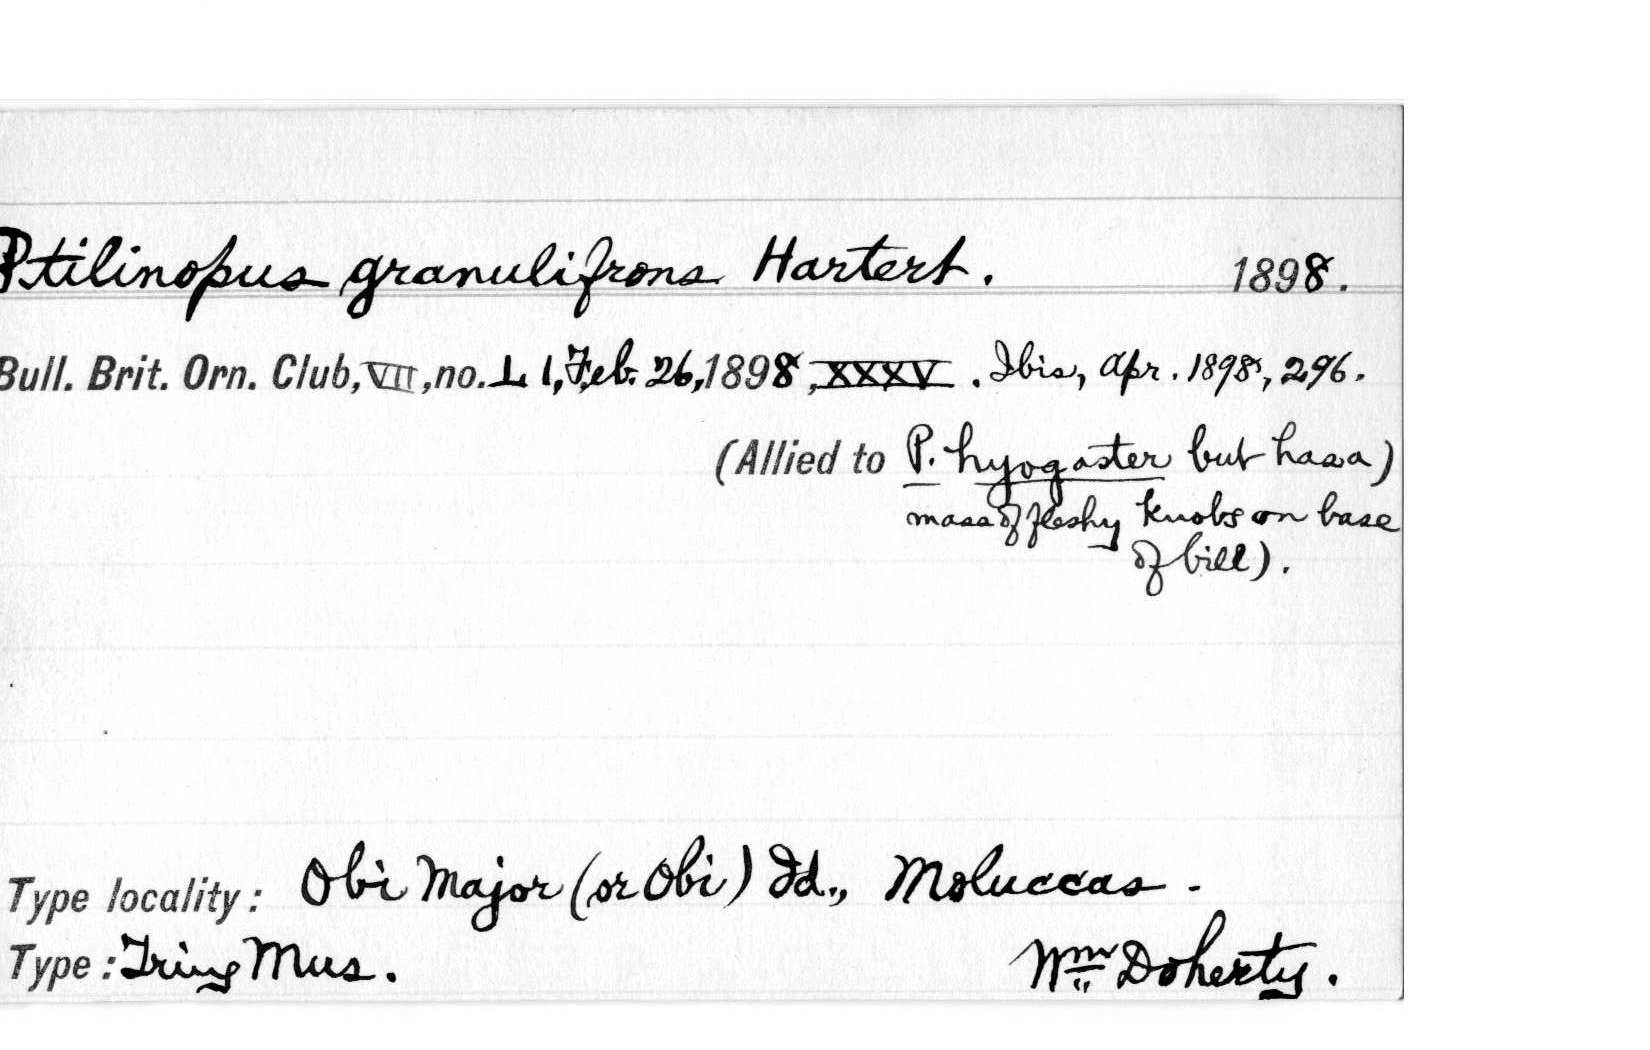 Ptilinopus granulifrons Hartert. 1898.
Bull. Brit. Orn. Club, VII, no. L I, Feb. 26, 1898, XXXV. Ibis, Apr. 1898, 296.
(Allied to P. hyogaster but has a)
mass of fleshy knobs on base
of bill).
Type locality: Obi Major (or Obi) Id., Moluccas.
Type: Tring Mus. Wm Doherty.